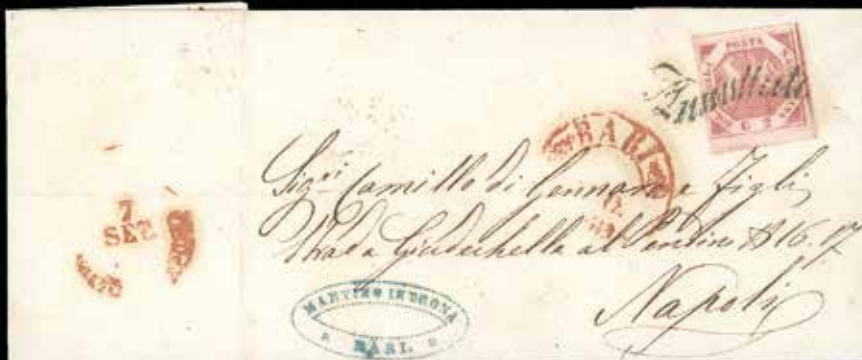 POSTA
G 2
Annullato
BARI
Sigri Camillo di Gennaro e Figli
Strada Giudechella al Pendino N 16. 17
Napoli
7
SET.
MARTINO
BARI.